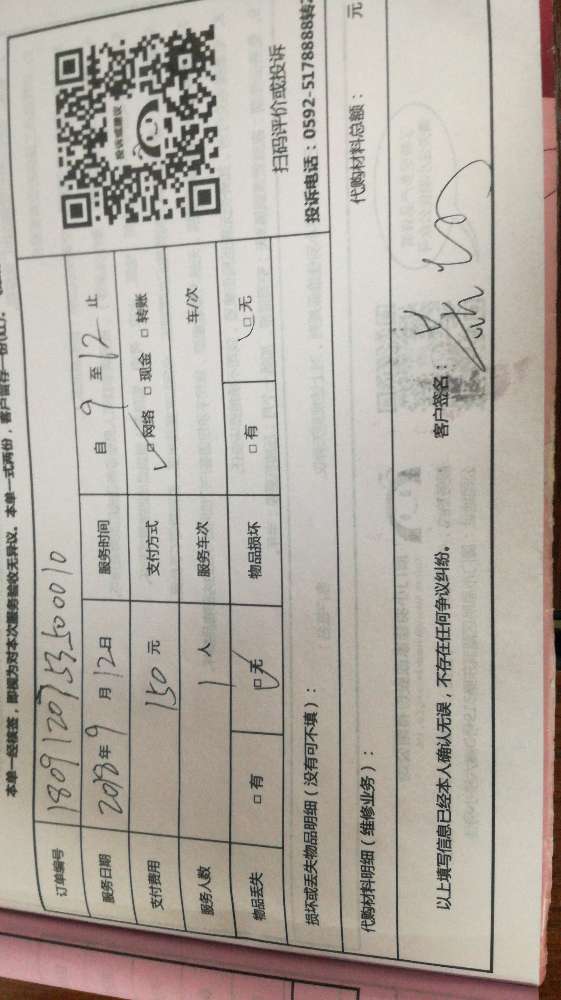 本单一经核签，即视为对本次服务验收无异议。本单一式两份，客户留存一份(红)。
订单编号 180912075350010
服务日期 2018年9月12日 服务时间 自9至12止
支付费用 150元 支付方式 □网络 □现金 □转账
服务人数 1人 服务车次 车/次
物品丢失 □有 □无 物品损坏 □有 □无
投诉或建议
扫码评价或投诉
投诉电话：0592-5178888转
损坏或丢失物品明细（没有可不填）：
代购材料明细（维修业务）： 代购材料总额： 元
以上填写信息已经本人确认无误，不存在任何争议纠纷。 客户签名：